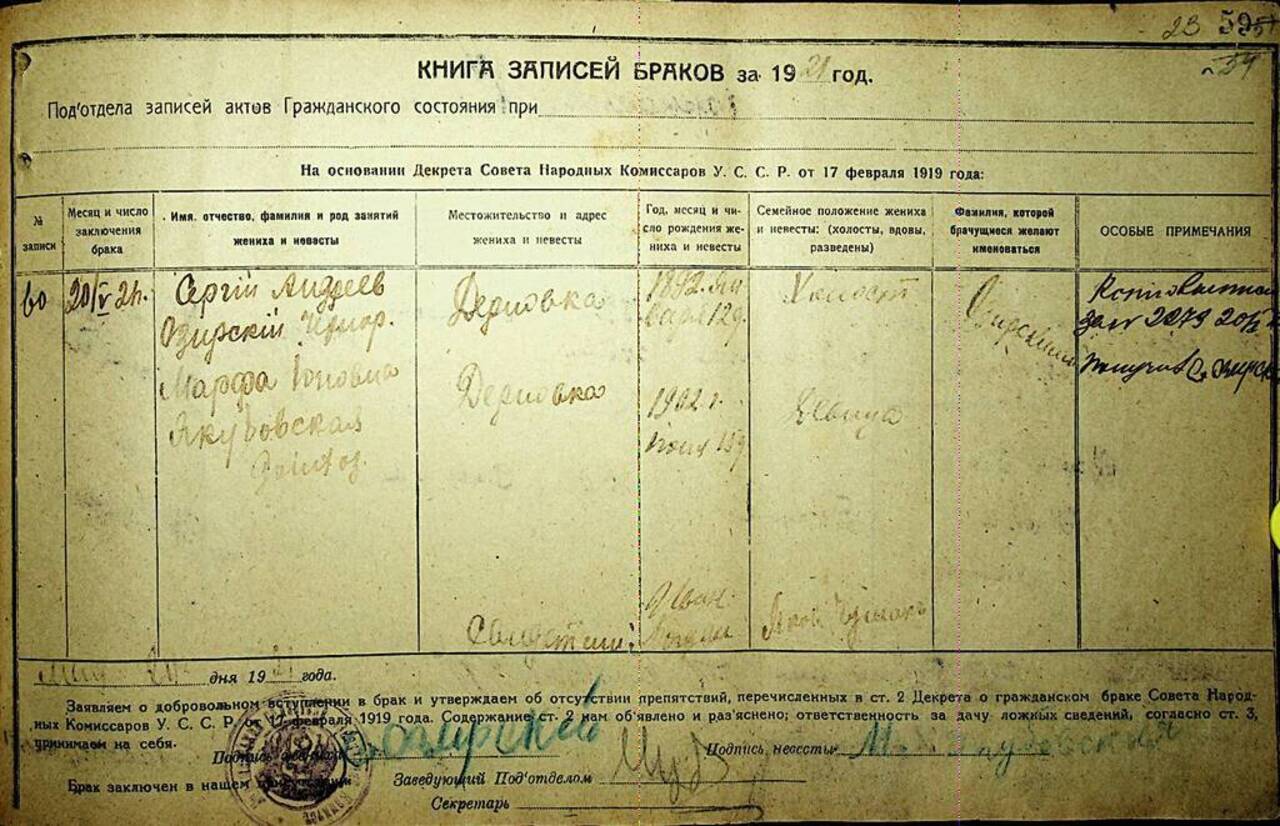 23 59
54
КНИГА ЗАПИСЕЙ БРАКОВ за 1921 год.
Под'отдела записей актов Гражданского состояния при
На основании Декрета Совета Народных Комиссаров У. С. С. Р. от 17 февраля 1919 года:
№ записи
Месяц и число заключения брака
Имя, отчество, фамилия и род занятий жениха и невесты
Местожительство и адрес жениха и невесты
Год, месяц и число рождения жениха и невесты
Семейное положение жениха и невесты: (холосты, вдовы, разведены)
Фамилия, которой брачущиеся желают именоваться
ОСОБЫЕ ПРИМЕЧАНИЯ
60
20/V 21г.
Сергій Андреев
Озирскій
Марфа
Якубовская
Дерновка
Дерновка
1892. Ян
варя 12д.
1902 г.
15д.
Холост
Девица
2279 20/
Яков
дня 1921 года.
Заявляем о добровольном вступлении в брак и утверждаем об отсутствии препятствий, перечисленных в ст. 2 Декрета о гражданском браке Совета Народ-
ных Комиссаров У. С. С. Р. от 17 февраля 1919 года. Содержание ст. 2 нам об'явлено и раз'яснено; ответственность за дачу ложных сведений, согласно ст. 3,
принимаем на себя.
Подпись жениха Озирский Подпись невесты М. Якубовская
Брак заключен в нашем Заведующий Под'отделом
Секретарь